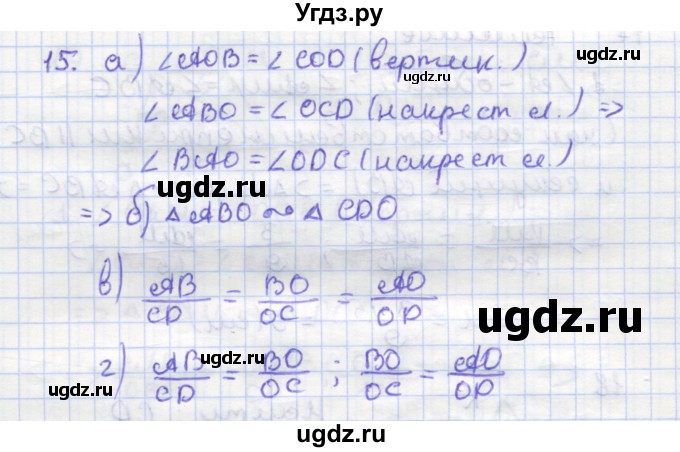 Угдз.ру
15. а) ∠AOB = ∠COD (вертик.)
∠ABO = ∠OCD (накрест л.) =>
∠BAO = ∠ODC (накрест л.)
=> б) △ABO ~ △CDO
в) AB/CD = BO/OC = AO/OD
г) AB/CD = BO/OC ; BO/OC = AO/OD
ugdz.ru
ugdz.ru
ugdz.ru
ugdz.ru
ugdz.ru
ugdz.ru
ugdz.ru
ugdz.ru